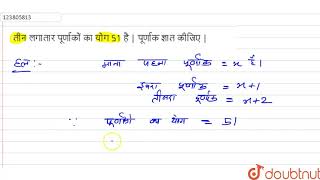 123805813
तीन लगातार पूर्णांकों का योग 51 है | पूर्णांक ज्ञात कीजिए |
हल:- माना पहला पूर्णांक = x है।
दूसरा पूर्णांक = x+1
तीसरा पूर्णांक = x+2
∵ पूर्णांकों का योग = 51
doubtnut